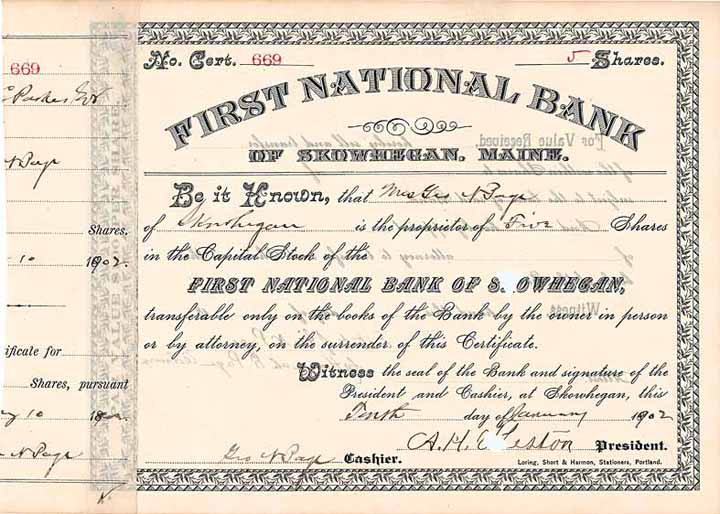 669
No. Cert. 669 5 Shares.
FIRST NATIONAL BANK
OF SKOWHEGAN, MAINE.
Be it Known, that Mrs Geo N Page
of Skowhegan is the proprietor of Five Shares
in the Capital Stock of the
FIRST NATIONAL BANK OF S OWHEGAN,
transferable only on the books of the Bank by the owner in person
or by attorney, on the surrender of this Certificate.
Witness the seal of the Bank and signature of the
President and Cashier, at Skowhegan, this
Tenth day of January 1902
A.H. President.
Geo N Page Cashier.
Loring, Short & Harmon, Stationers, Portland.
N Page
Shares.
10 1902
ificate for
Shares, pursuant
10
N Page
For Value Received
hereby sell and transfer
attorney to
Witness